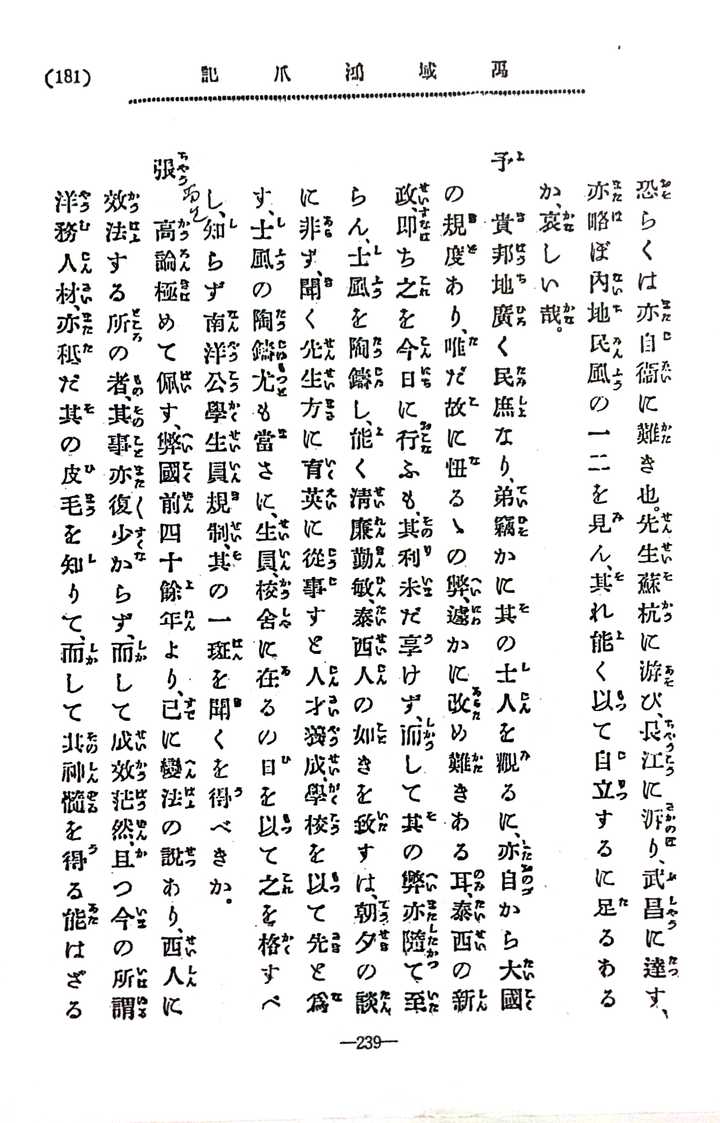 (181) 禹域鴻爪記
恐らくは亦自衞に難き也。先生蘇杭に游び、長江に泝り、武昌に達す、
亦略ぼ內地民風の一二を見ん、其れ能く以て自立するに足るある
か、哀しい哉。
予 貴邦地廣く民庶なり、弟竊かに其の士人を觀るに、亦自から大國
の規度あり、唯だ故に忸るゝの弊、遽かに改め難きある耳、泰西の新
政、卽ち之を今日に行ふも、其利未だ享けず、而して其の弊亦隨て至
らん、士風を陶鑄し、能く淸廉勤敏、泰西人の如きを致すは、朝夕の談
に非ず、聞く先生方に育英に從事すと人才獎成學校を以て先と爲
す、士風の陶鑄尤も當さに、生員、校舍に在るの日を以て之を格すべ
し、知らず南洋公學生員規制、其の一斑を聞くを得べきか。
張 高論極めて佩す、弊國前四十餘年より、已に變法の說あり、西人に
效法する所の者、其事亦復く少からず、而して成效茫然、且つ今の所謂
洋務人材、亦秪だ其の皮毛を知りて、而して其神髓を得る能はざる
—239—